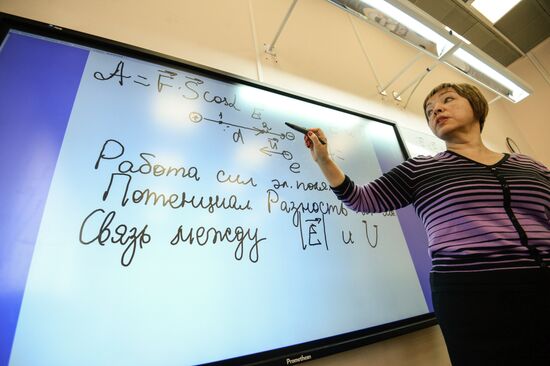 A = F⃗ · S⃗ cosα
E
d
e
Работа сил эл. поля
Потенциал. Разность
Связь между |E⃗| и U
Promethean